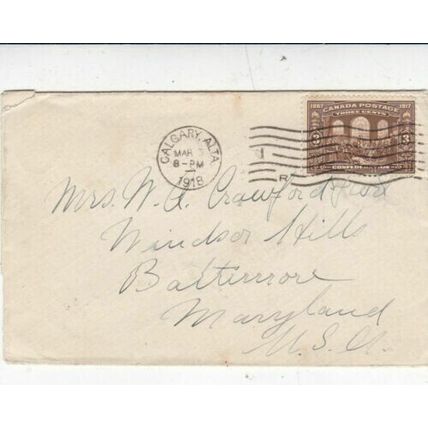 1867 CANADA POSTAGE 1917
THREE CENTS
3 3
CONFEDERATION
CALGARY, ALTA.
MAR
8-PM
1918
R
Mrs. W. A. Crawford
Windsor Hills
Baltimore
Maryland
U.S.A.